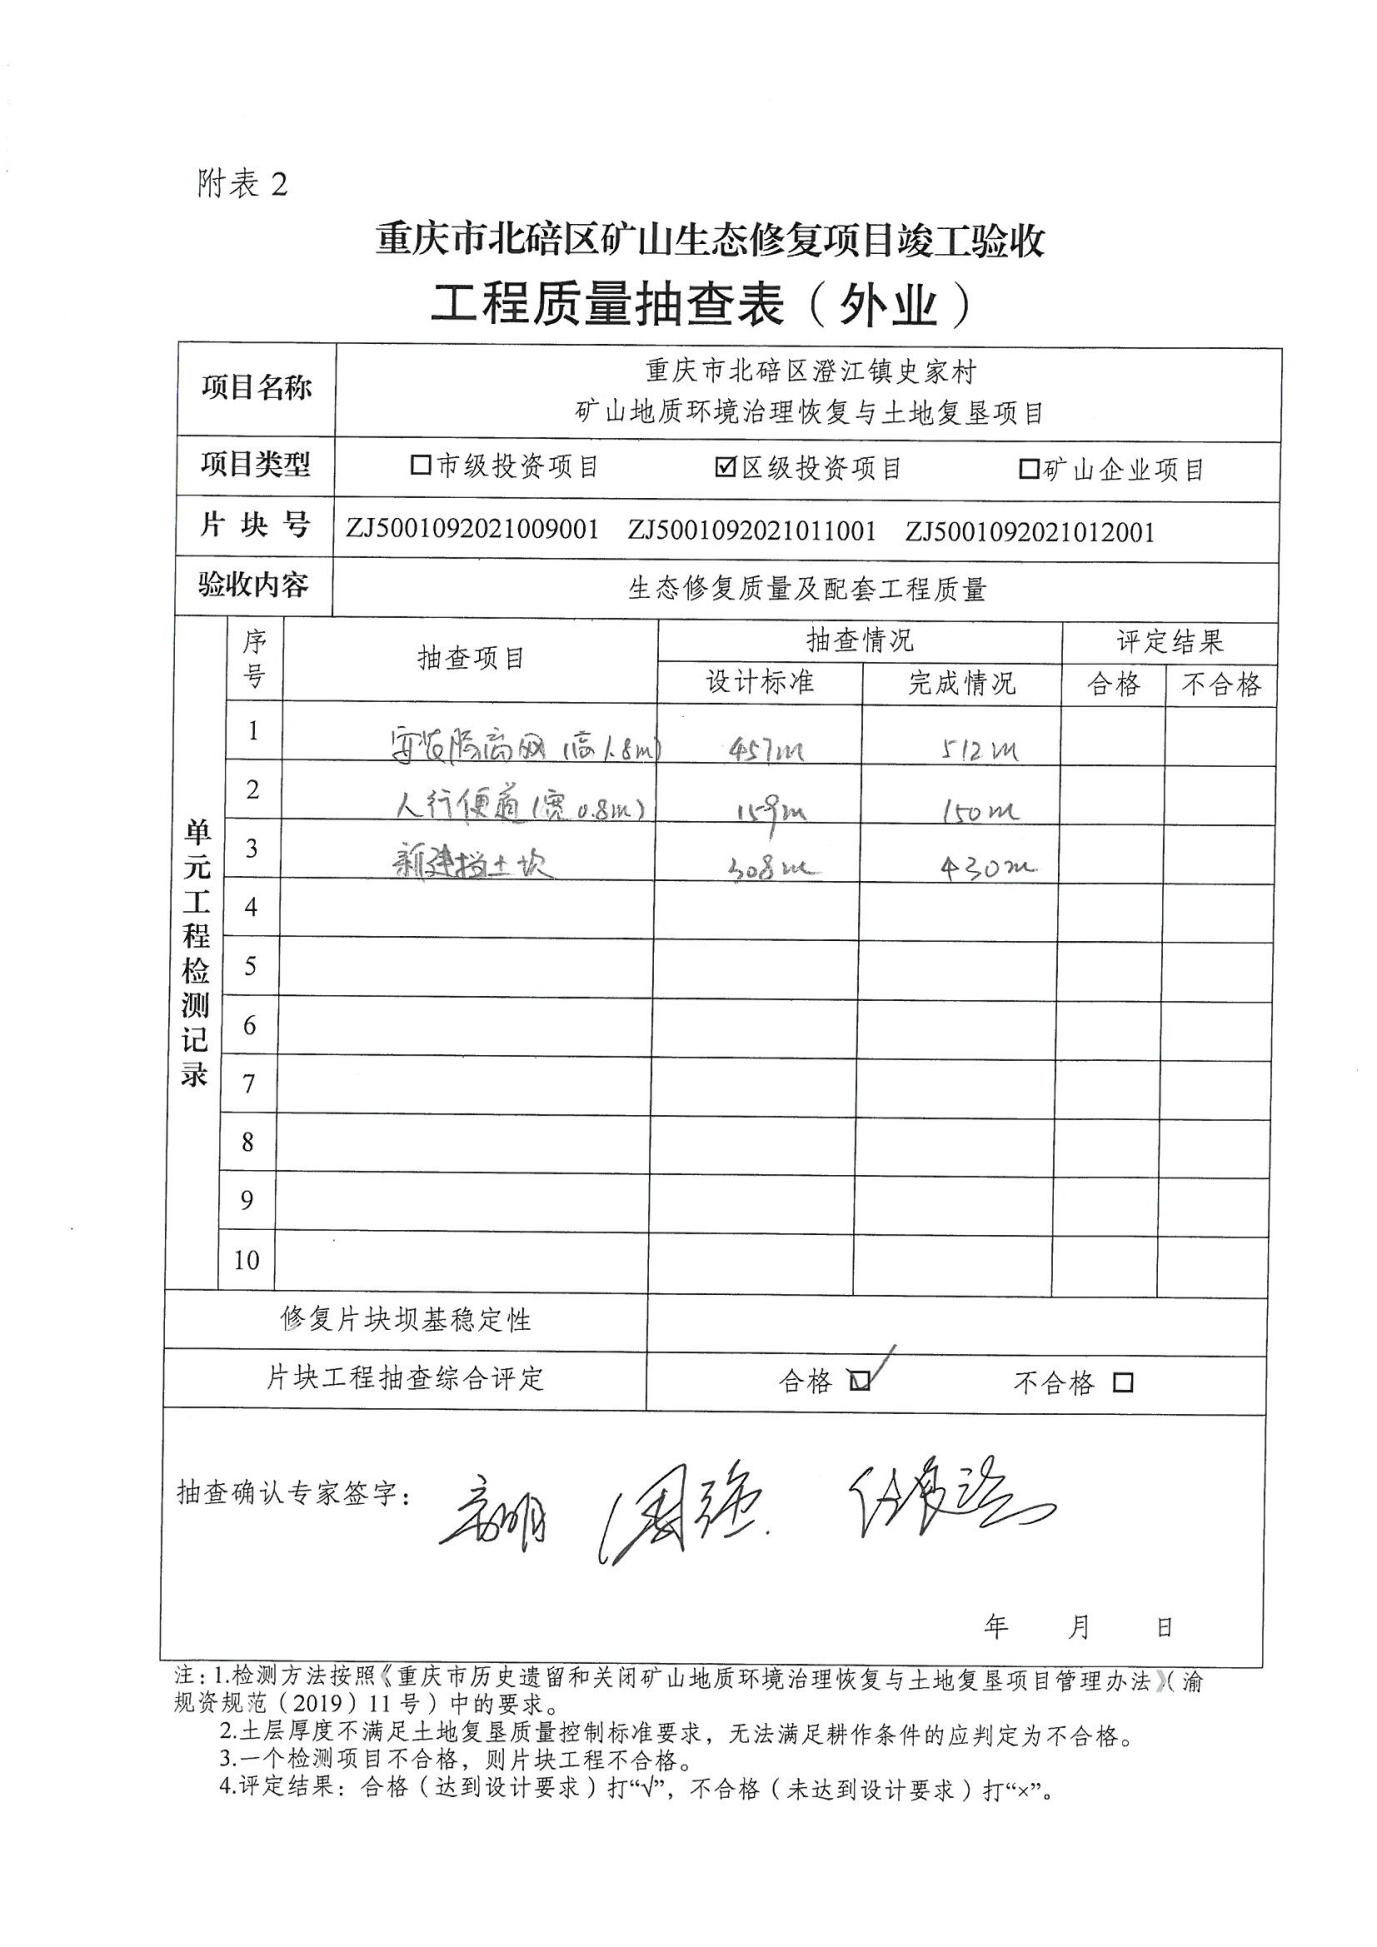 附表 2
重庆市北碚区矿山生态修复项目竣工验收
工程质量抽查表（外业）
项目名称
重庆市北碚区澄江镇史家村
矿山地质环境治理恢复与土地复垦项目
项目类型 □市级投资项目 ☑区级投资项目 □矿山企业项目
片块号 ZJ5001092021009001 ZJ5001092021011001 ZJ5001092021012001
验收内容 生态修复质量及配套工程质量
单元工程检测记录
序号 抽查项目 抽查情况 评定结果
设计标准 完成情况 合格 不合格
1 安装隔离网（高1.8m） 457m 512m
2 人行便道（宽0.8m） 159m 150m
3 新建挡土坎 308m 430m
4
5
6
7
8
9
10
修复片块坝基稳定性
片块工程抽查综合评定 合格 ☑ 不合格 □
抽查确认专家签字： 周强
年 月 日
注：1.检测方法按照《重庆市历史遗留和关闭矿山地质环境治理恢复与土地复垦项目管理办法》（渝
规资规范（2019）11 号）中的要求。
2.土层厚度不满足土地复垦质量控制标准要求，无法满足耕作条件的应判定为不合格。
3.一个检测项目不合格，则片块工程不合格。
4.评定结果：合格（达到设计要求）打“√”，不合格（未达到设计要求）打“×”。